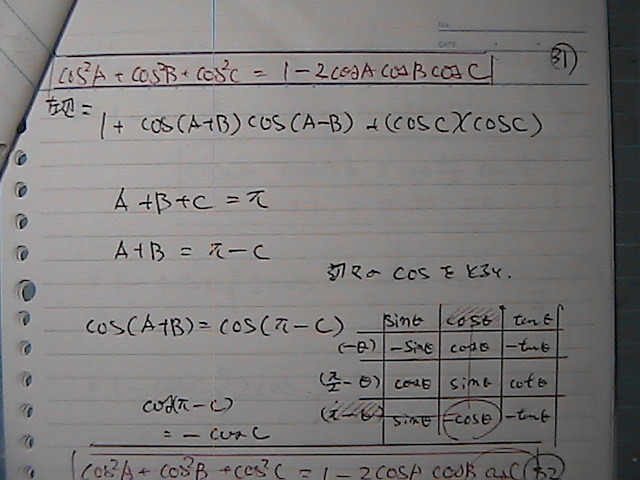 No.
DATE
31
cos²A + cos²B + cos²C = 1 - 2cosA cosB cosC
左辺 =
1 + cos(A+B) cos(A-B) + (cosC)(cosC)
A + B + C = π
A + B = π - C
cos をとるよ.
cos(A+B) = cos(π - C)
sinθ cosθ tanθ
(-θ) -sinθ cosθ -tanθ
(π/2 - θ) cosθ sinθ cotθ
(π - θ) sinθ -cosθ -tanθ
cos(π - C)
= - cosC
cos²A + cos²B + cos²C = 1 - 2cosA cosB cosC 32